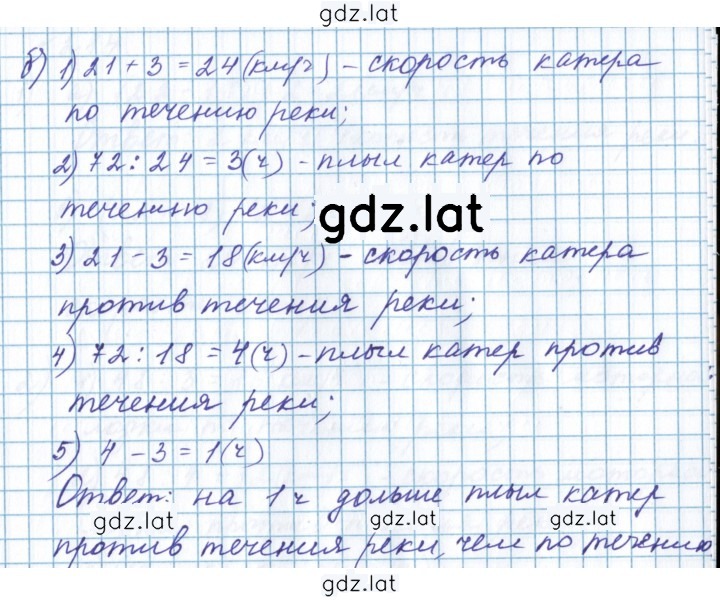 gdz.lat
б) 1) 21 + 3 = 24 (км/ч) - скорость катера
по течению реки;
2) 72 : 24 = 3 (ч) - плыл катер по
течению реки;
gdz.lat
3) 21 - 3 = 18 (км/ч) - скорость катера
против течения реки;
4) 72 : 18 = 4 (ч) - плыл катер против
течения реки;
5) 4 - 3 = 1 (ч)
Ответ: на 1 ч дольше плыл катер
gdz.lat gdz.lat
против течения реки, чем по течению
gdz.lat